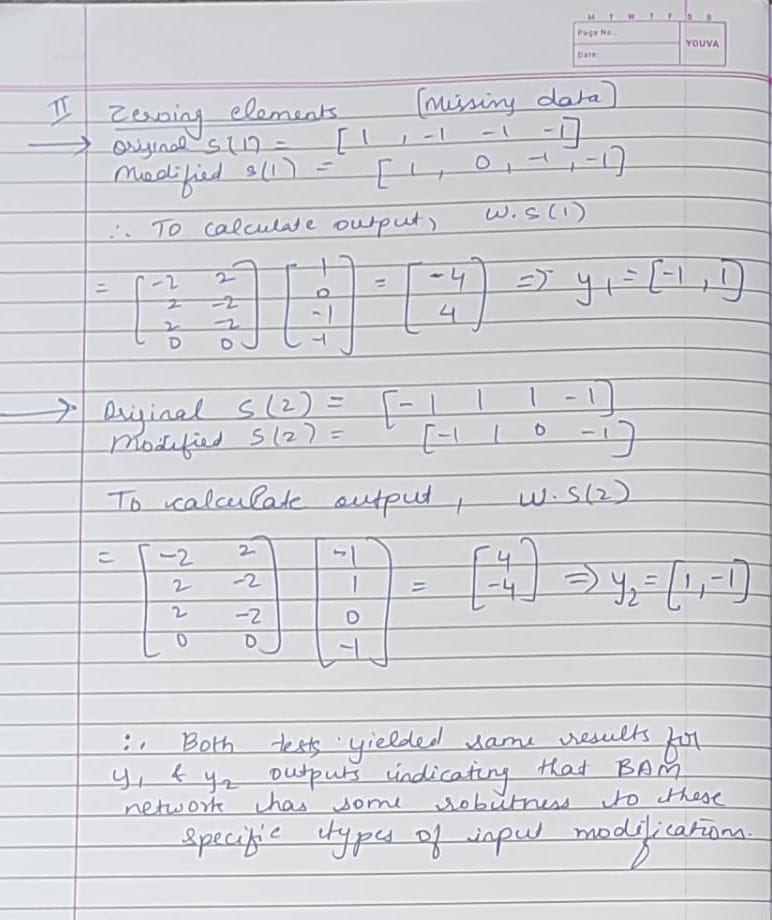 M T W T F S S
Page No.
YOUVA
Date
II Zeroing elements [Missing data]
→ Original S(1) = [1, -1 -1 -1]
Modified s(1) = [1, 0, -1, -1]
∴ To calculate output, W.S(1)
= [-2 2; 2 -2; 2 -2; 0 0] [1; 0; -1; -1] = [-4; 4] ⇒ y₁ = [-1, 1]
→ Original S(2) = [-1 1 1 -1]
Modified S(2) = [-1 1 0 -1]
To calculate output, W.S(2)
= [-2 2; 2 -2; 2 -2; 0 0] [-1; 1; 0; -1] = [4; -4] ⇒ y₂ = [1, -1]
∴ Both tests yielded same results for
y₁ & y₂ outputs indicating that BAM
network has some robutness to these
specific types of input modifications.